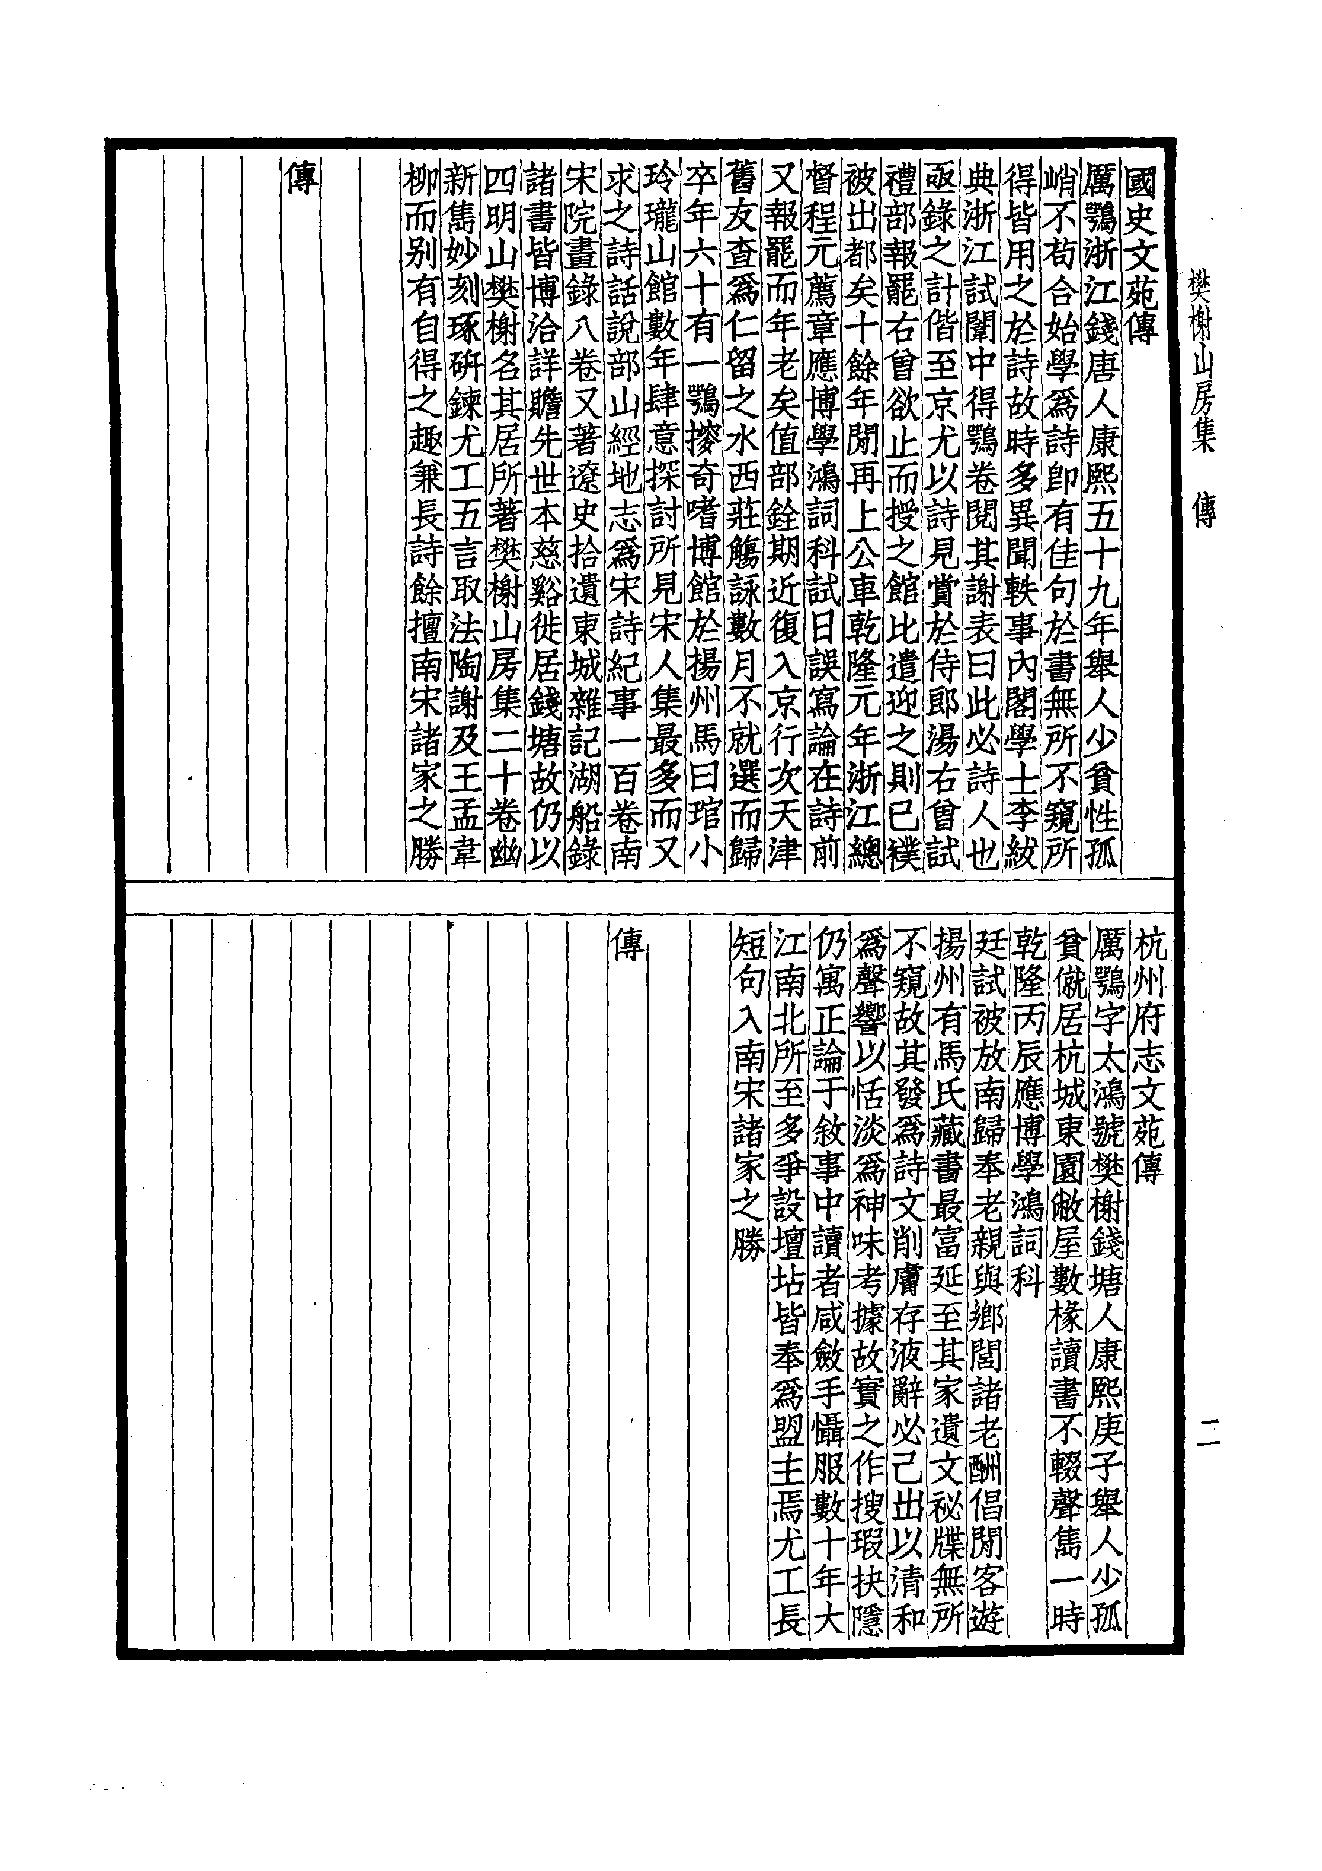 樊榭山房集　傳
二
國史文苑傳
厲鶚浙江錢唐人康熙五十九年舉人少貧性孤
峭不苟合始學爲詩卽有佳句於書無所不窺所
得皆用之於詩故時多異聞軼事內閣學士李紱
典浙江試闈中得鶚卷閱其謝表曰此必詩人也
亟錄之計偕至京尤以詩見賞於侍郎湯右曾試
禮部報罷右曾欲止而授之館比遣迎之則已襆
被出都矣十餘年閒再上公車乾隆元年浙江總
督程元薦章應博學鴻詞科試日誤寫論在詩前
又報罷而年老矣值部銓期近復入京行次天津
舊友查爲仁留之水西莊觴詠數月不就選而歸
卒年六十有一鶚搜奇嗜博館於揚州馬曰琯小
玲瓏山館數年肆意探討所見宋人集最多而又
求之詩話說部山經地志爲宋詩紀事一百卷南
宋院畫錄八卷又著遼史拾遺東城雜記湖船錄
諸書皆博洽詳贍先世本慈谿徙居錢塘故仍以
四明山樊榭名其居所著樊榭山房集二十卷幽
新雋妙刻琢研鍊尤工五言取法陶謝及王孟韋
柳而别有自得之趣兼長詩餘擅南宋諸家之勝
傳
杭州府志文苑傳
厲鶚字太鴻號樊榭錢塘人康熙庚子舉人少孤
貧僦居杭城東園敝屋數椽讀書不輟聲雋一時
乾隆丙辰應博學鴻詞科
廷試被放南歸奉老親與鄉閭諸老酬倡閒客遊
揚州有馬氏藏書最富延至其家遺文祕牒無所
不窺故其發爲詩文削膚存液辭必己出以清和
爲聲響以恬淡爲神味考據故實之作搜瑕抉隱
仍寓正論于敘事中讀者咸斂手懾服數十年大
江南北所至多爭設壇坫皆奉爲盟主焉尤工長
短句入南宋諸家之勝
傳